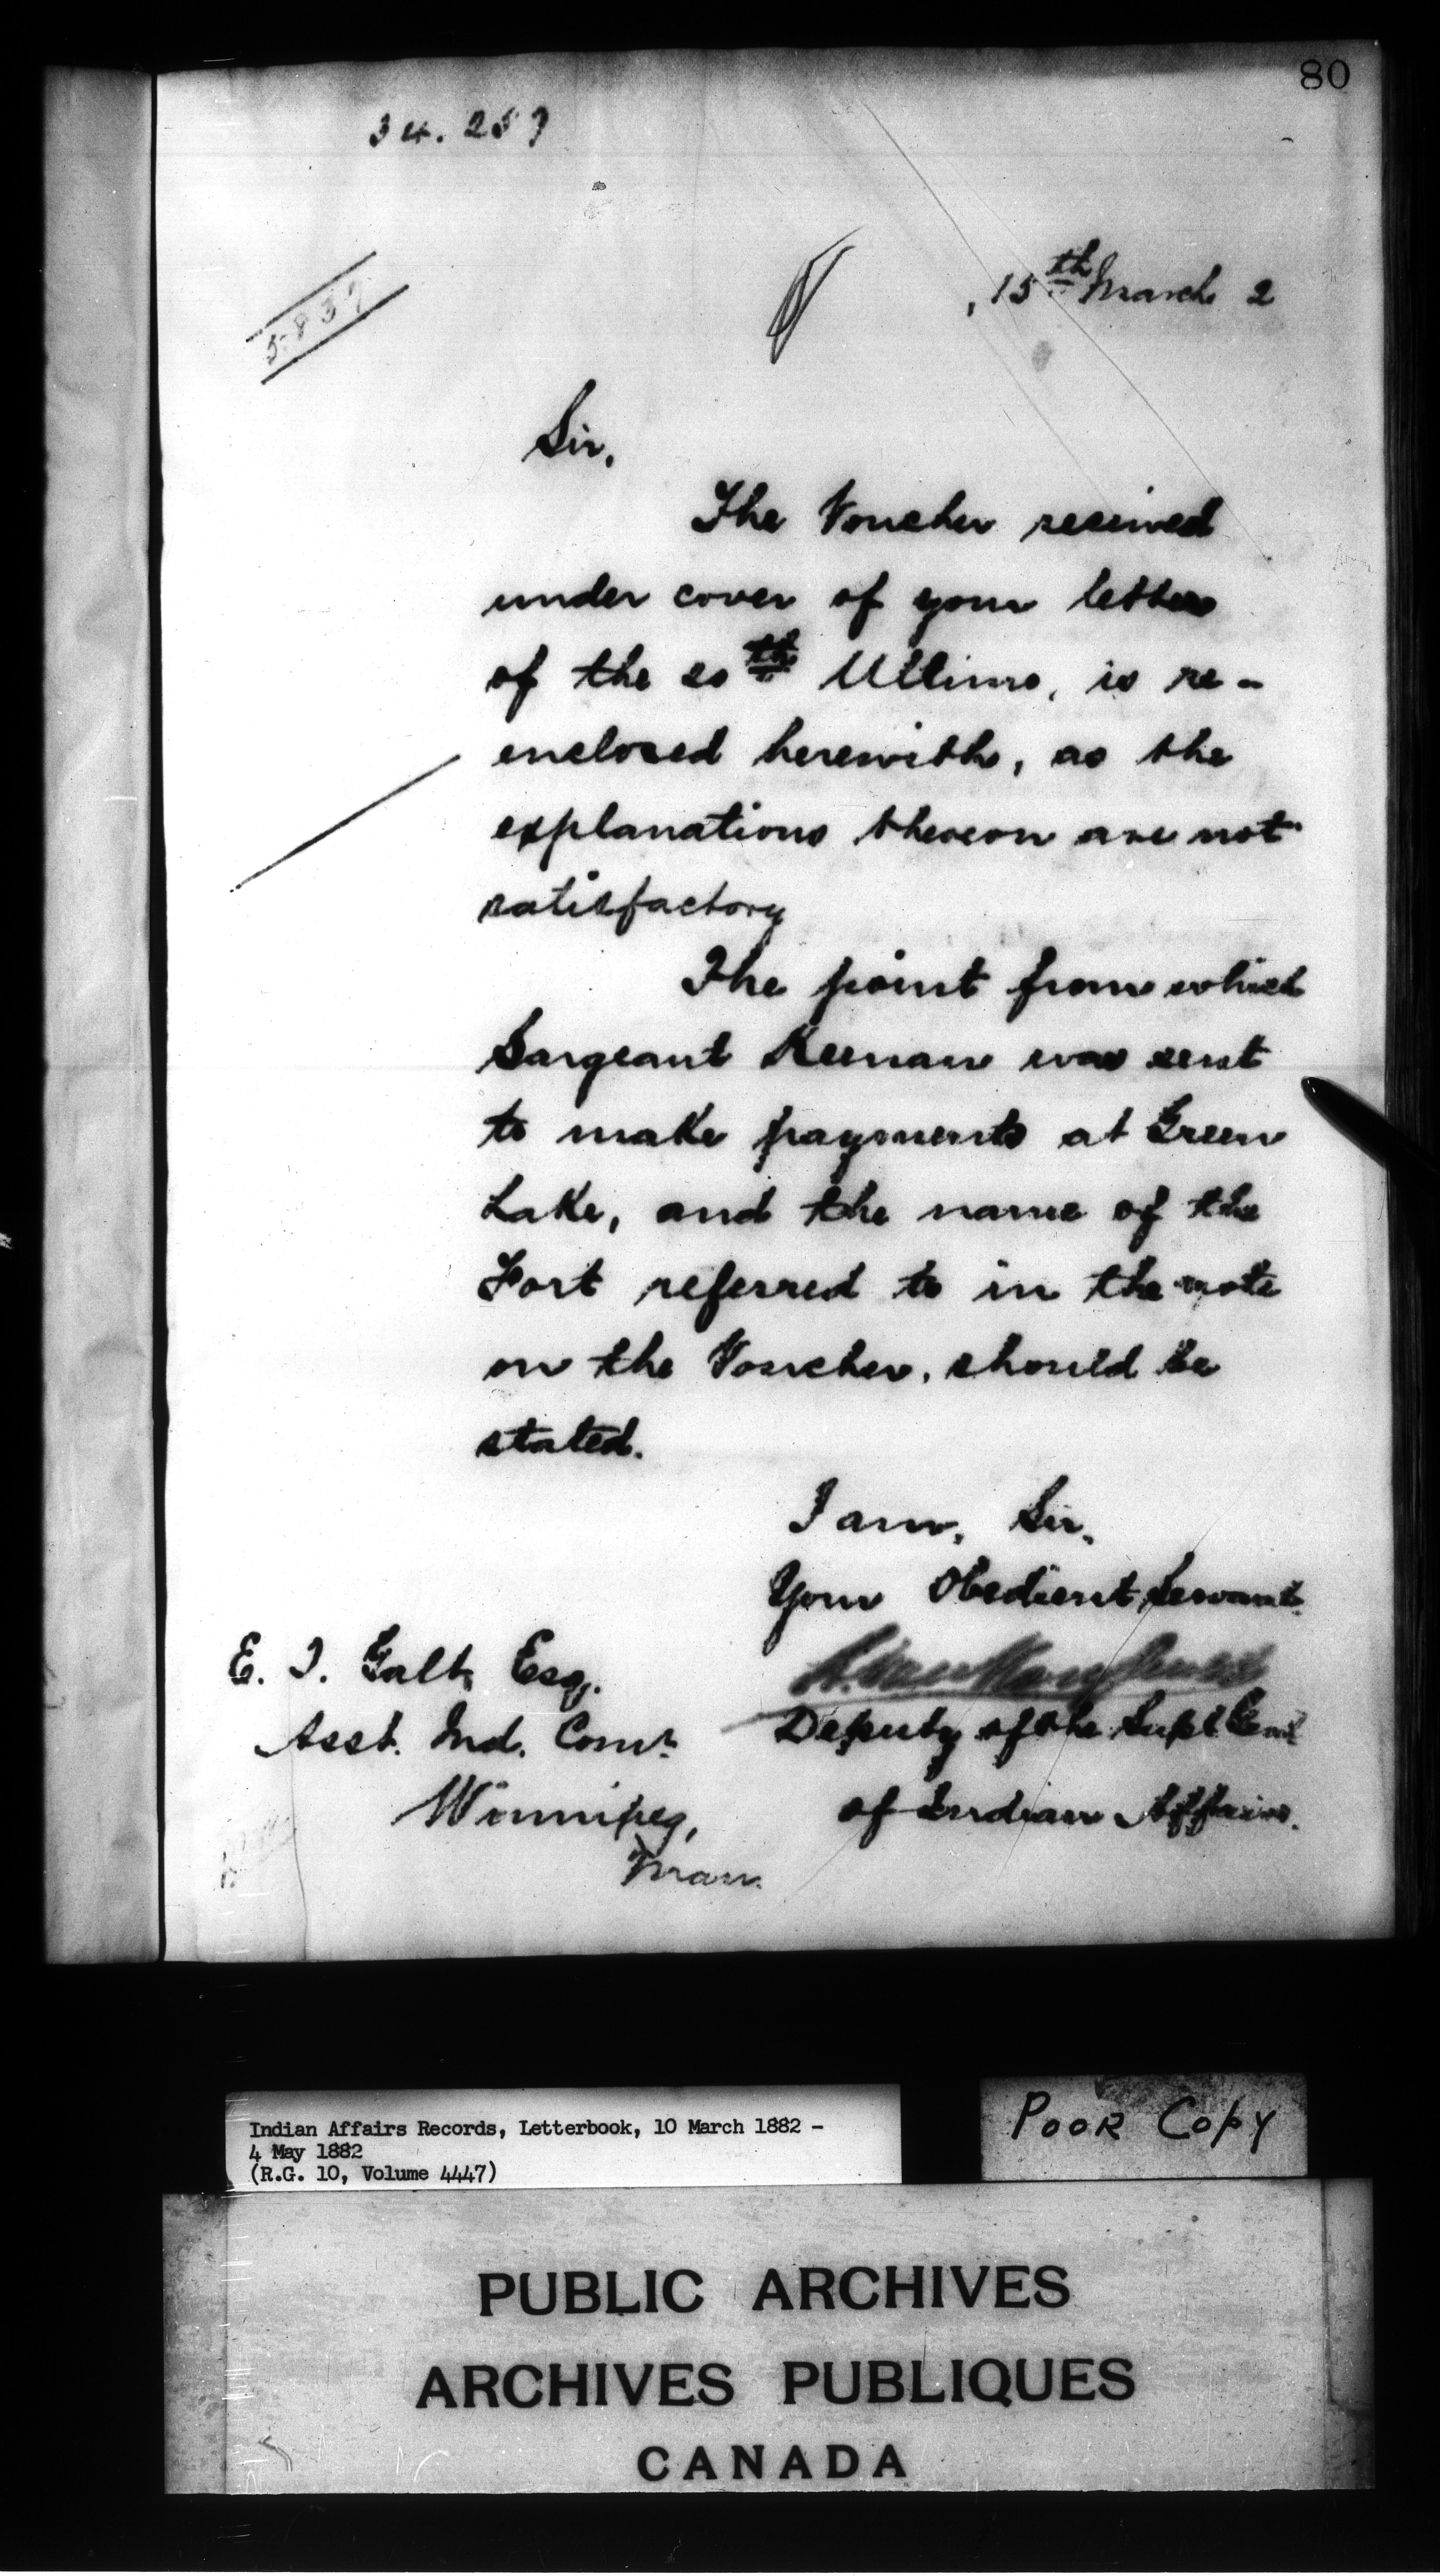 80
34.257
5837
15th March 2
Sir,
The Voucher received
under cover of your letter
of the 20th Ultimo, is re-
enclosed herewith, as the
explanations thereon are not
satisfactory
The point from which
Sargeant Keenan was sent
to make payments at Green
Lake, and the name of the
Fort referred to in the note
on the Voucher, should be
stated.
I am, Sir,
Your Obedient Servant
Deputy of the Supt Genl
of Indian Affairs.
E. T. Galt, Esq.
Asst. Ind. Comr.
Winnipeg,
Man.
Indian Affairs Records, Letterbook, 10 March 1882 -
4 May 1882
(R.G. 10, Volume 4447)
POOR COPY
PUBLIC ARCHIVES
ARCHIVES PUBLIQUES
CANADA